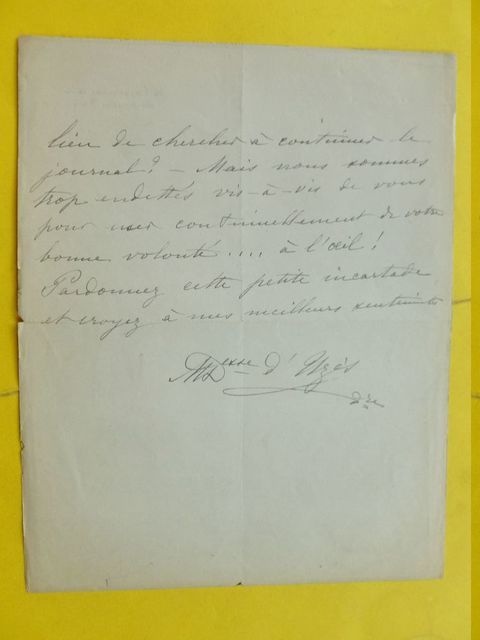 lieu de chercher à continuer le
journal? – Mais nous sommes
trop endettés vis-à-vis de vous
pour user continuellement de votre
bonne volonté .... à l'œil!
Pardonnez cette petite incartade
et croyez à mes meilleurs sentiments
Desse d'Uzès
dre